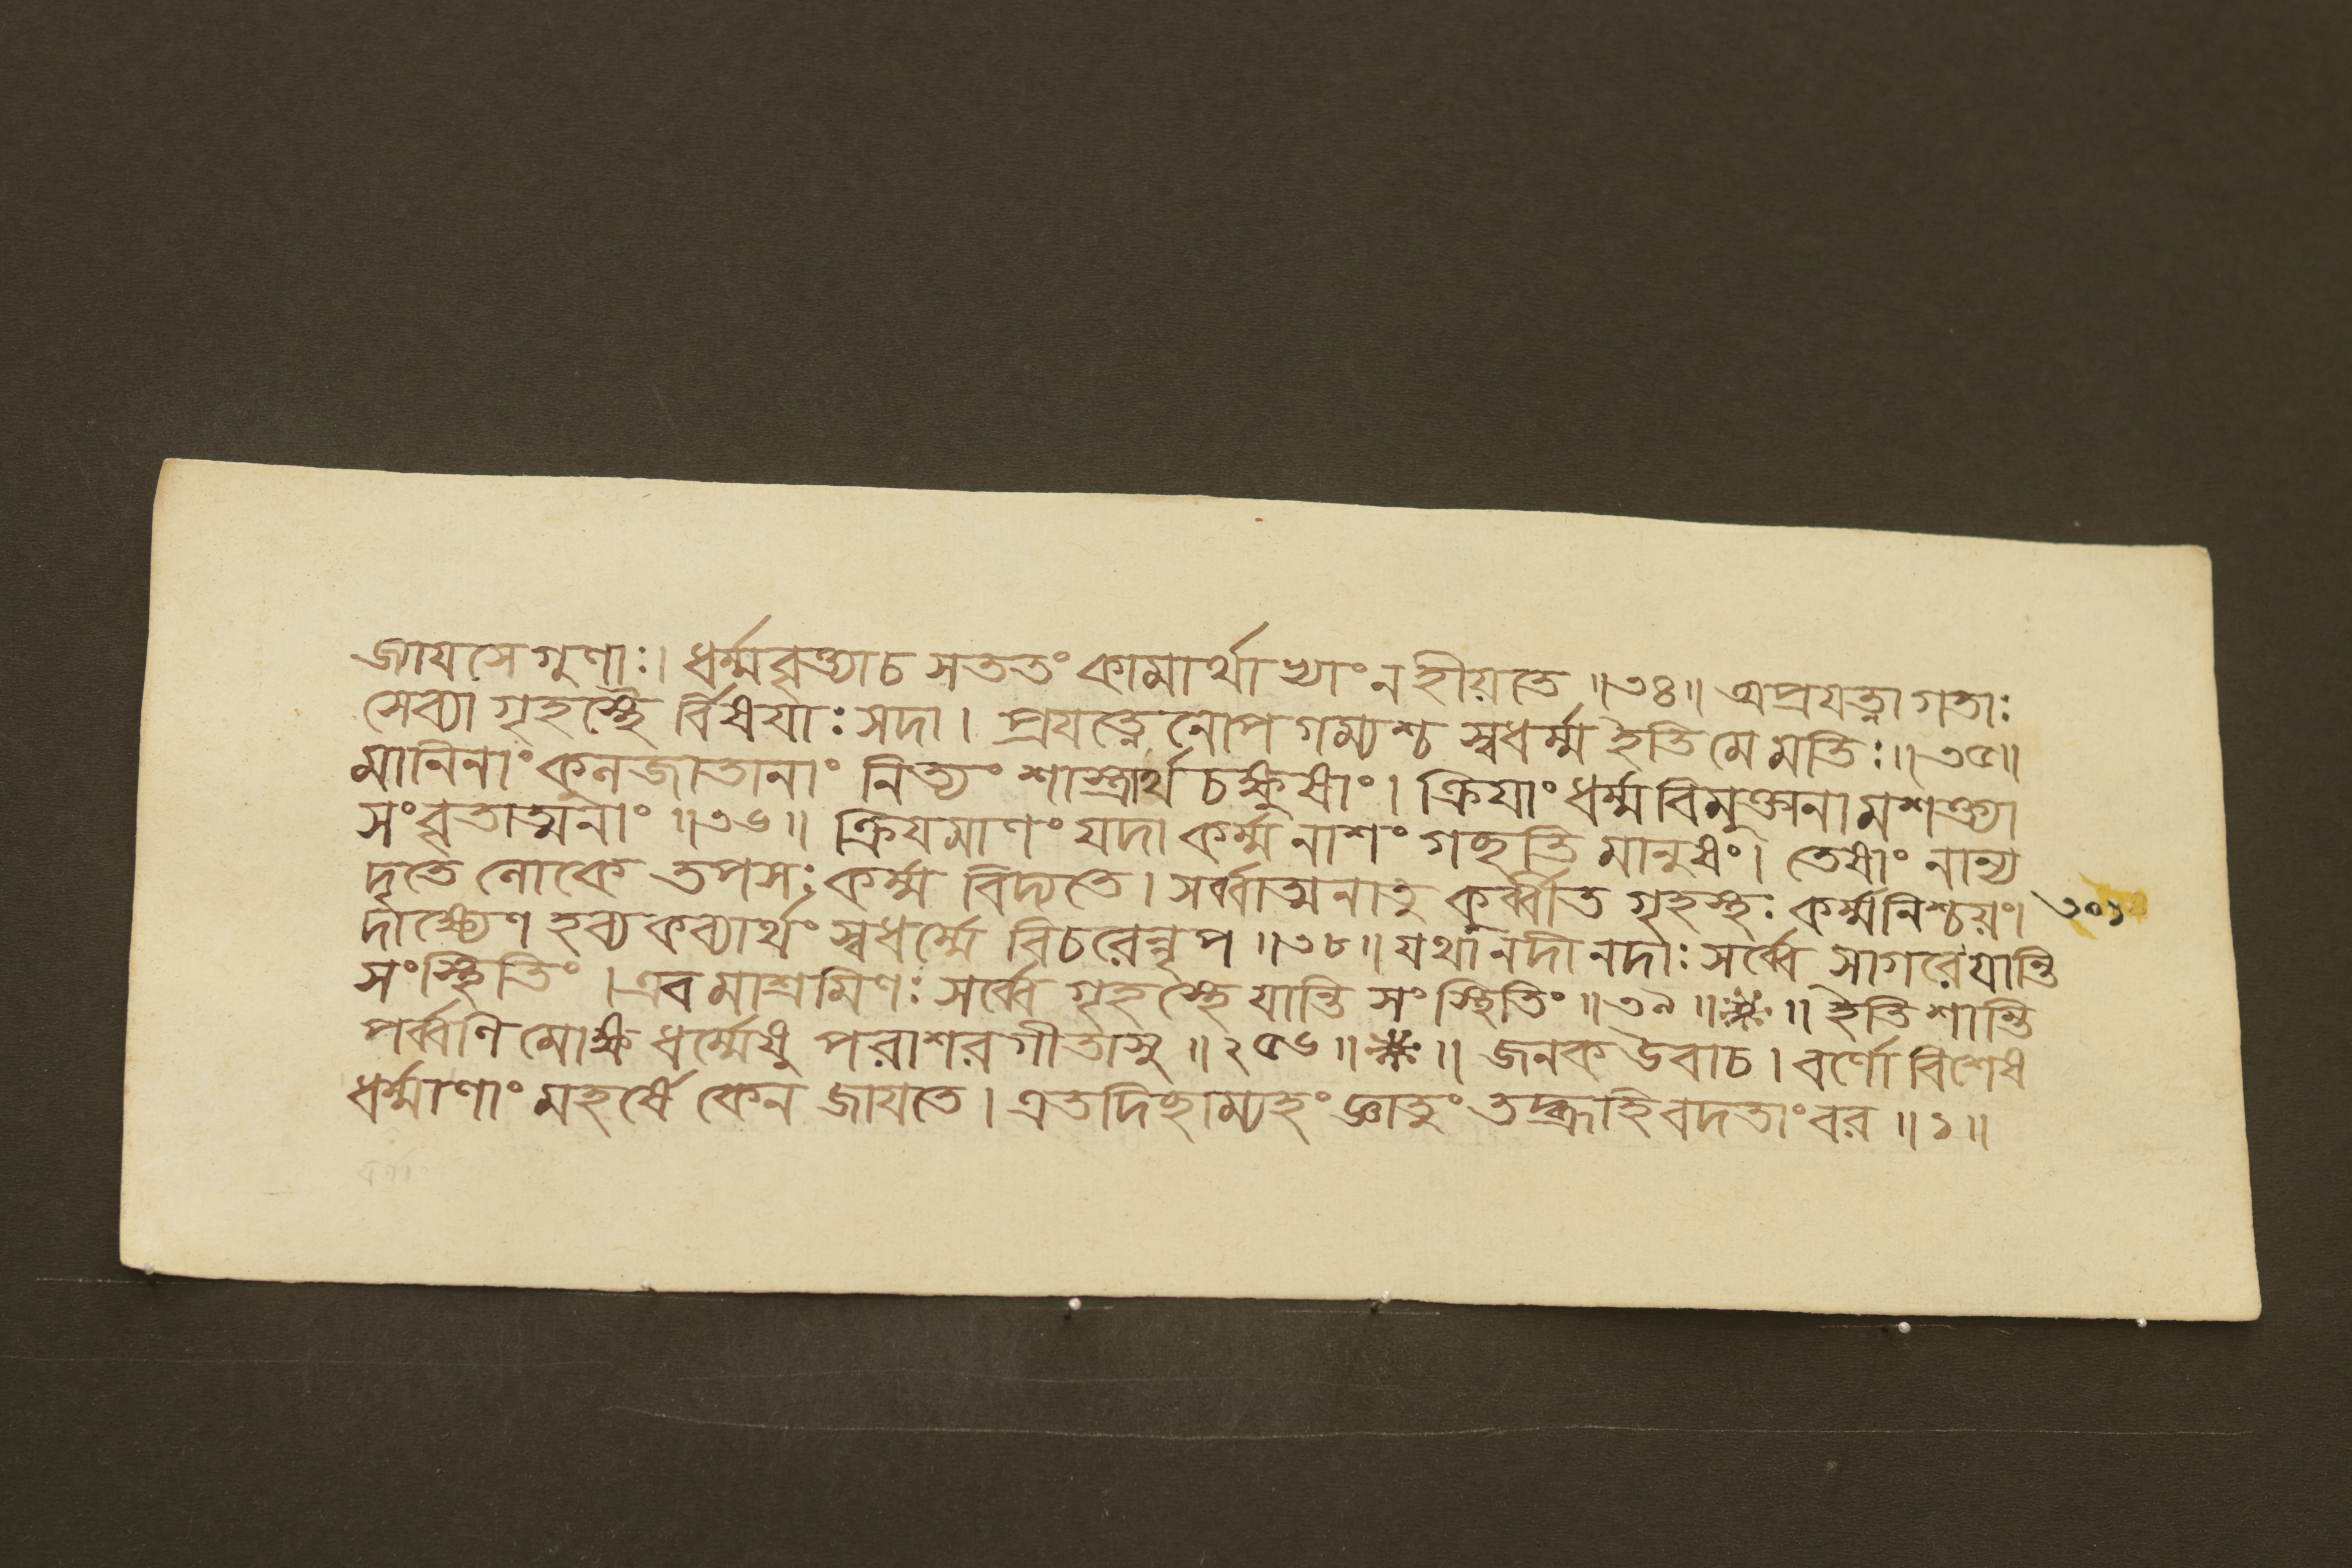 জায়সে গুণাঃ। ধর্ম্মবৃত্ত্যাচ সততং কামার্থাভ্যাং ন হীয়তে ॥৩৪॥ অপ্রযত্নাগতাঃ
সেব্যা গৃহস্থৈ র্বিষযাঃ সদা। প্রযত্নেনোপগম্যশ্চ স্বধর্ম্ম ইতি মে মতিঃ॥৩৫॥
মানিনাং কুলজাতানাং নিত্যং শাস্ত্রার্থচক্ষুষাং। ক্রিযাং ধর্ম্মবিমুক্তানামশক্ত্যা
সংবৃতাত্মনাং ॥৩৬॥ ক্রিযমাণং যদা কর্ম্ম নাশং গচ্ছতি মানুষং। তেষাং নান্য
দৃতে লোকে তপসঃ কর্ম্ম বিদ্যতে। সর্ব্বাত্মনাতু কুর্ব্বীত গৃহস্থঃ কর্ম্মনিশ্চয়ং। ৩০১
দাক্ষ্যেণ হব্যকব্যার্থং স্বধর্ম্মে বিচরেন্নৃপ ॥৩৮॥ যথা নদীনদাঃ সর্ব্বে সাগরে যান্তি
সংস্থিতিং। এবমাশ্রমিণঃ সর্ব্বে গৃহস্থে যান্তি সংস্থিতিং ॥৩৯॥ ॥ ইতি শান্তি
পর্ব্বণি মোক্ষধর্ম্মেষু পরাশরগীতাসু ॥২৫৬॥ ॥ জনক উবাচ। বর্ণো বিশেষ
ধর্ম্মাণাং মহর্ষে কেন জায়তে। এতদিচ্ছাম্যহং জ্ঞাতুং তদ্ব্রূহি বদতাংবর ॥১॥